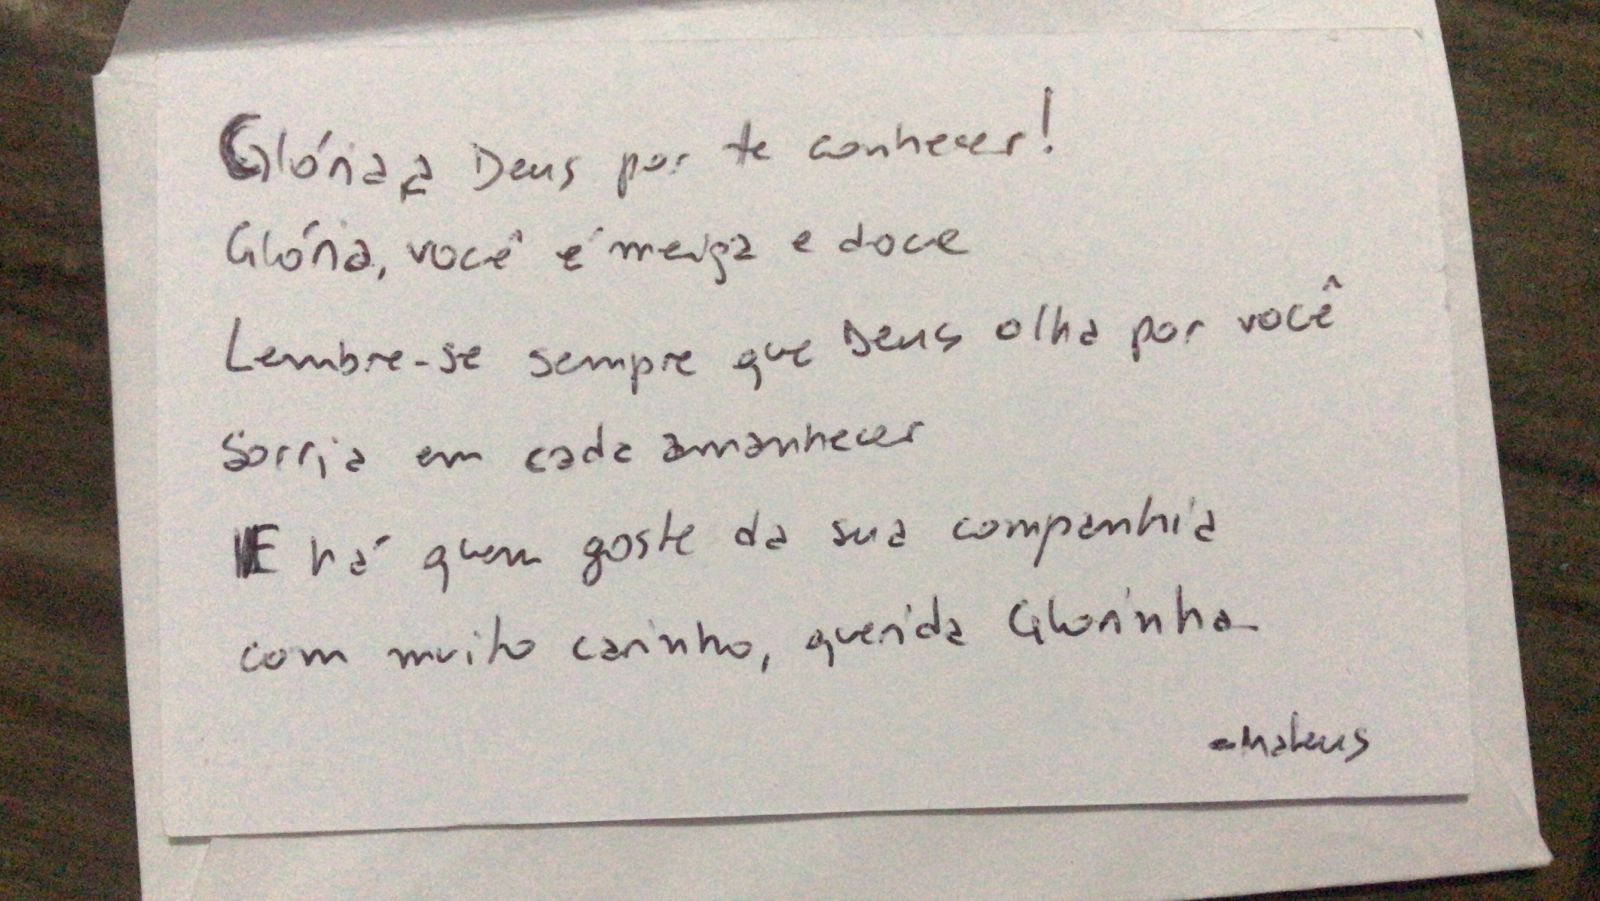 Glória a Deus por te conhecer!
Glória, você é meiga e doce
Lembre-se sempre que Deus olha por você
Sorria em cada amanhecer
E há quem goste da sua companhia
com muito carinho, querida Glorinha
-Mateus